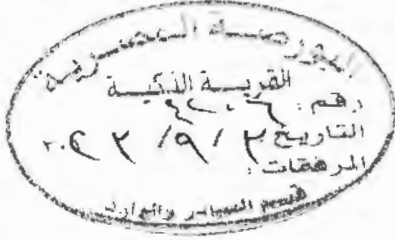 البورصة المصرية
القرية الذكية
رقم :
التاريخ
المرفقات :
قسم الصادر والوارد